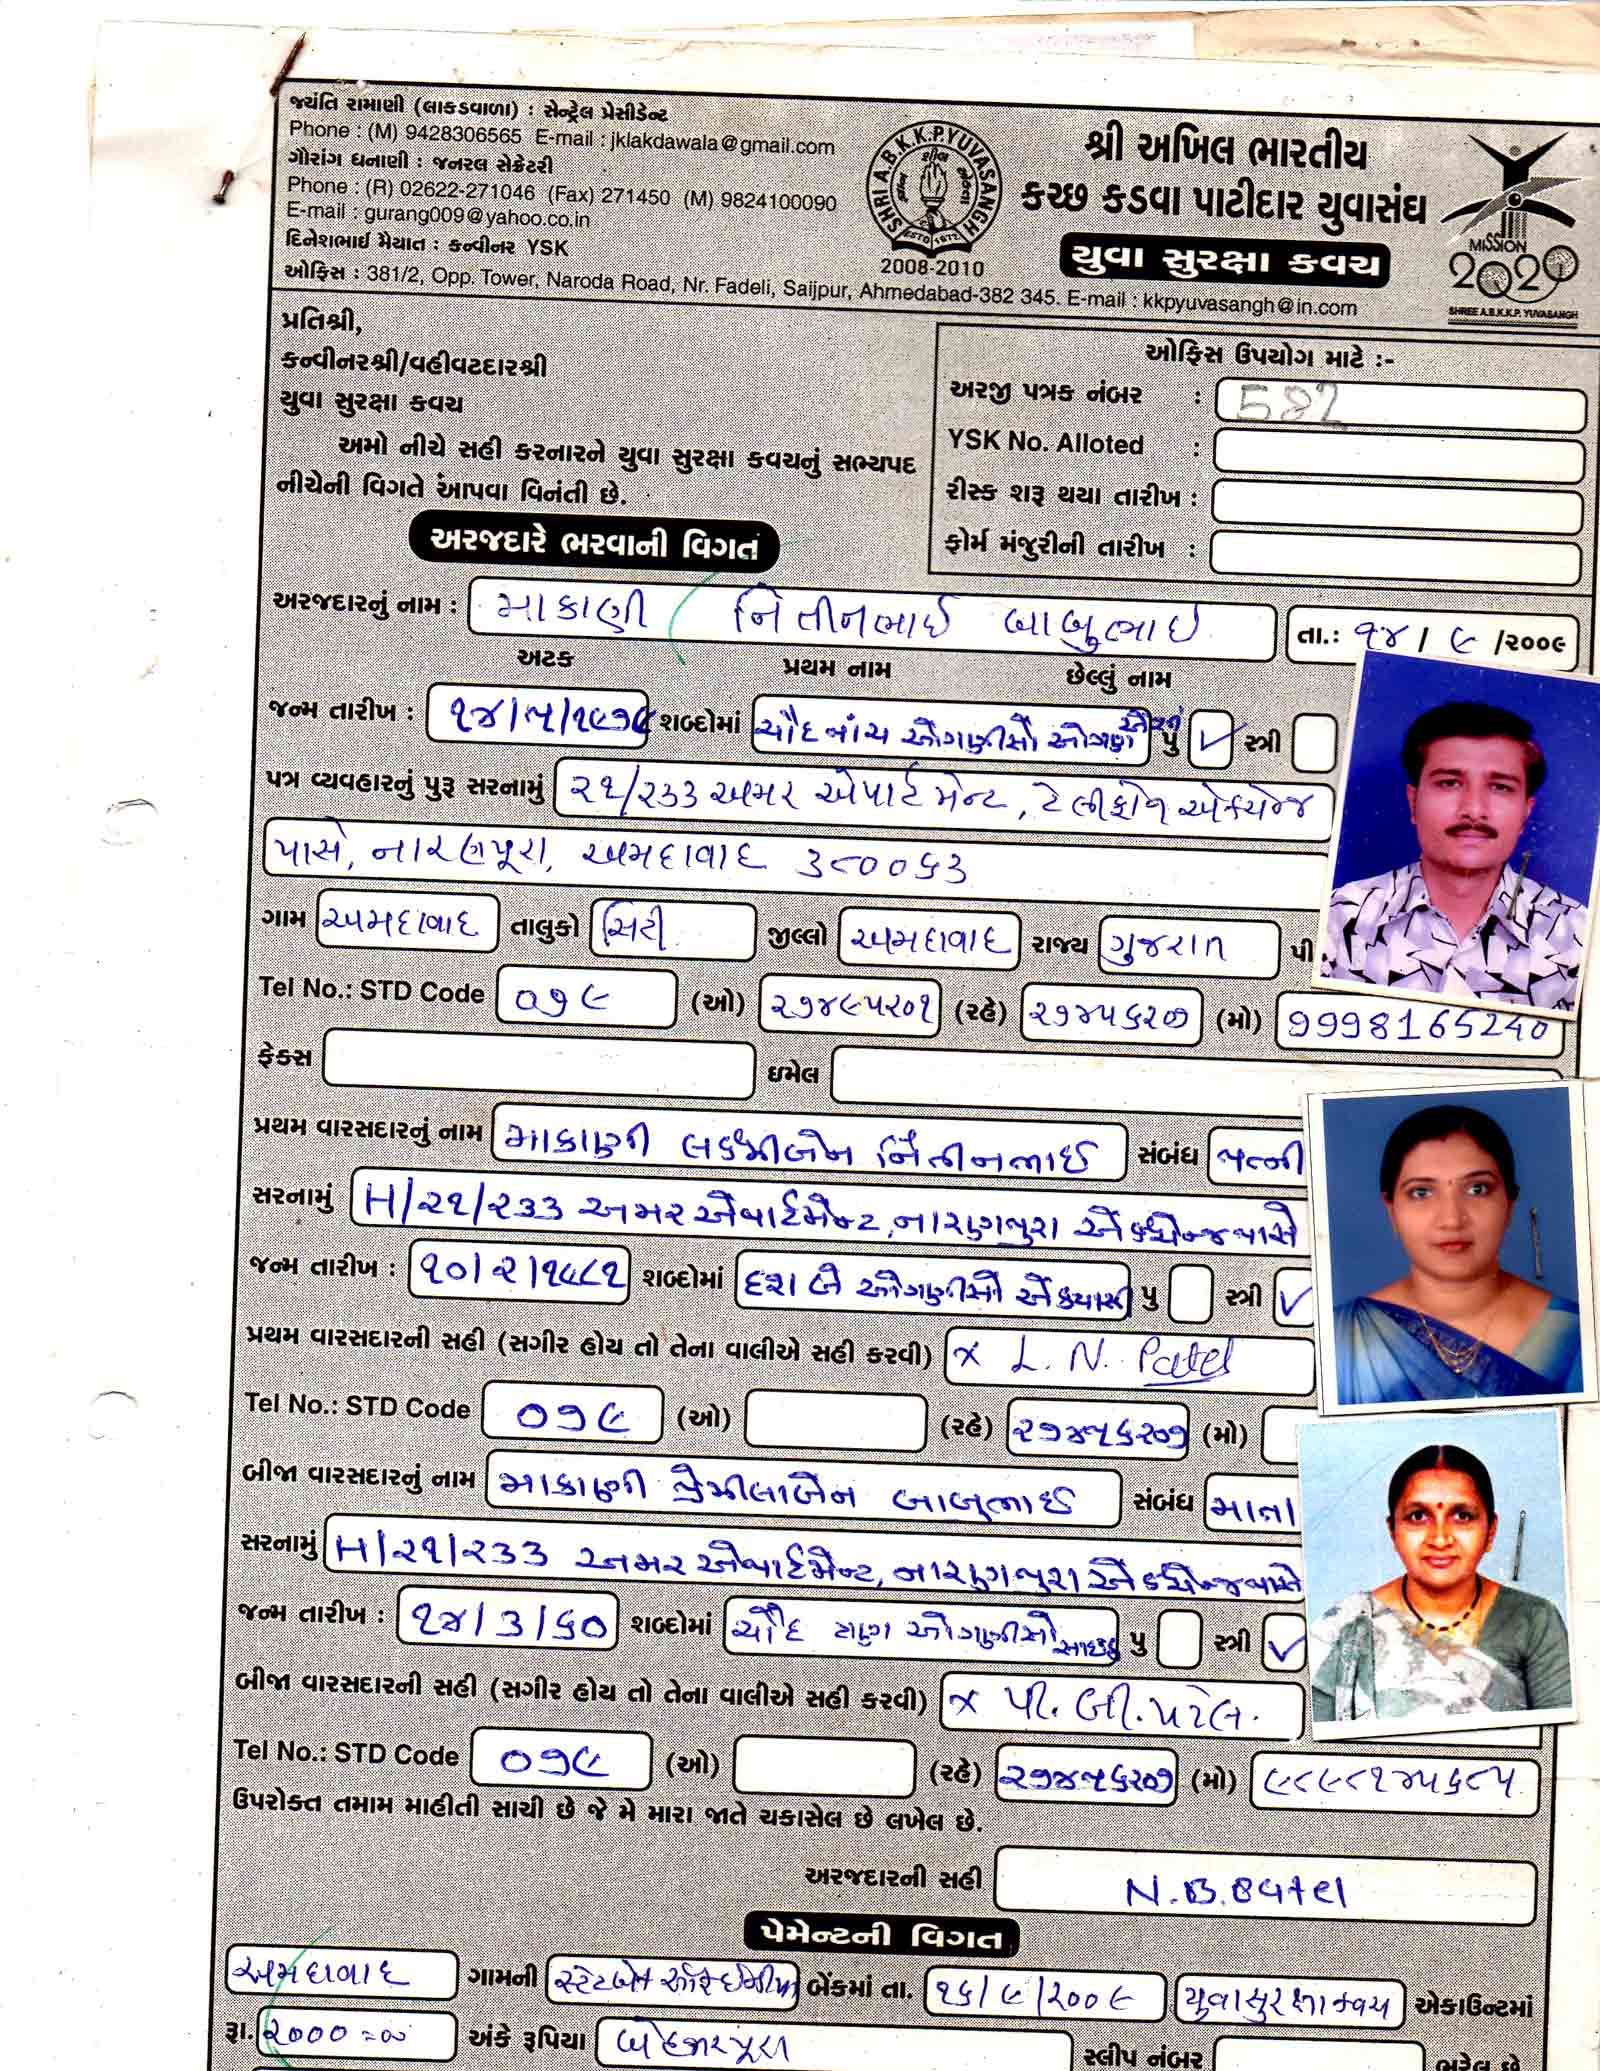 જયંતિ રામાણી (લાકડાવાળા) : સેન્ટ્રેલ પ્રેસીડેન્ટ
Phone : (M) 9428306565 E-mail : jklakdawala@gmail.com
ગૌરાંગ ધનાણી : જનરલ સેક્રેટરી
Phone : (R) 02622-271046 (Fax) 271450 (M) 9824100090
E-mail : gurang009@yahoo.co.in
દિનેશભાઈ મૈયાત : કન્વીનર YSK
ઓફિસ : 381/2, Opp. Tower, Naroda Road, Nr. Fadeli, Saijpur, Ahmedabad-382 345. E-mail : kkpyuvasangh@in.com
SHRI A.B.K.K.P. YUVASANGH
2008-2010
શ્રી અખિલ ભારતીય
કચ્છ કડવા પાટીદાર યુવાસંઘ
યુવા સુરક્ષા કવચ
MISSION
2020
SHREE A.B.K.K.P. YUVASANGH
પ્રતિશ્રી,
કન્વીનરશ્રી/વહીવટદારશ્રી
યુવા સુરક્ષા કવચ
અમો નીચે સહી કરનારને યુવા સુરક્ષા કવચનું સભ્યપદ
નીચેની વિગતે આપવા વિનંતી છે.
ઓફિસ ઉપયોગ માટે :-
અરજી પત્રક નંબર : 582
YSK No. Alloted :
રીસ્ક શરૂ થયા તારીખ :
ફોર્મ મંજુરીની તારીખ :
અરજદારે ભરવાની વિગત
અરજદારનું નામ : માકાણી નિતીનભાઈ બાબુભાઇ તા.: ૧૪ / ૯ /૨૦૦૯
અટક પ્રથમ નામ છેલ્લું નામ
જન્મ તારીખ : ૧૪/૫/૧૯૭૯ શબ્દોમાં ચૌદ પાંચ ઓગણીસો પુ ✓ સ્ત્રી
પત્ર વ્યવહારનું પુરૂ સરનામું ૨૧/૨૩૩ અમર એપાર્ટમેન્ટ, ટેલીફોન એક્ચેન્જ
પાસે, નારણપૂરા, અમદાવાદ ૩૮૦૦૬૩
ગામ અમદાવાદ તાલુકો સિટી જીલ્લો અમદાવાદ રાજ્ય ગુજરાત પી
Tel No.: STD Code ૦૭૯ (ઓ) ૨૭૪૯૫૨૦૧ (રહે) ૨૭૪૫૬૨૦૭ (મો) 9998165240
ફેક્સ ઇમેલ
પ્રથમ વારસદારનું નામ માકાણી લક્ષ્મીબેન નિતીનભાઈ સંબંધ પત્ની
સરનામું H/૨૧/૨૩૩ અમર એપાર્ટમેન્ટ, નારણપુરા એક્ષચેન્જ પાસે
જન્મ તારીખ : ૧૦/૨/૧૯૮૧ શબ્દોમાં દશ બે ઓગણીસો એકયાસી પુ સ્ત્રી ✓
પ્રથમ વારસદારની સહી (સગીર હોય તો તેના વાલીએ સહી કરવી) x L. N. Patel
Tel No.: STD Code ૦૭૯ (ઓ) (રહે) ૨૭૪૫૬૨૦૭ (મો)
બીજા વારસદારનું નામ માકાણી પ્રેમીલાબેન બાબુભાઈ સંબંધ માતા
સરનામું H/૨૧/૨૩૩ અમર એપાર્ટમેન્ટ, નારણપુરા એક્ષચેન્જ પાસે
જન્મ તારીખ : ૧૪/૩/૬૦ શબ્દોમાં ચૌદ ત્રણ ઓગણીસો સાઈઠ પુ સ્ત્રી ✓
બીજા વારસદારની સહી (સગીર હોય તો તેના વાલીએ સહી કરવી) x પી. બી. પટેલ.
Tel No.: STD Code ૦૭૯ (ઓ) (રહે) ૨૭૪૫૬૨૦૭ (મો) ૯૮૯૮૧૪૫૬૮૫
ઉપરોક્ત તમામ માહીતી સાચી છે જે મે મારા જાતે ચકાસેલ છે લખેલ છે.
અરજદારની સહી N.B.Patel
પેમેન્ટની વિગત
અમદાવાદ ગામની સ્ટેટ બેંક ઓફ ઈન્ડીયા બેંકમાં તા. ૧૬/૯/૨૦૦૯ યુવા સુરક્ષા કવચ એકાઉન્ટમાં
રૂા. ૨૦૦૦=૦૦ અંકે રૂપિયા બે હજાર પૂરા સ્લીપ નંબર ભરેલ છે